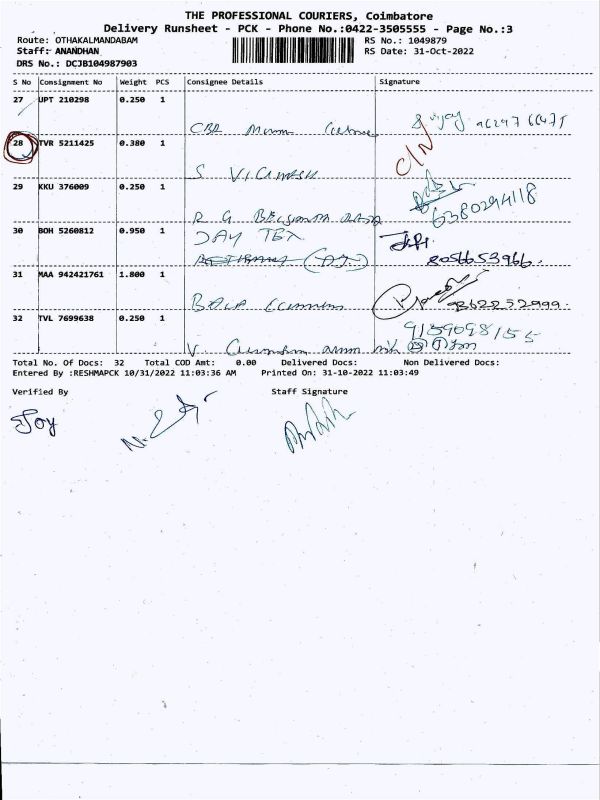 THE PROFESSIONAL COURIERS, Coimbatore
Delivery Runsheet - PCK - Phone No.:0422-3505555 - Page No.:3
Route: OTHAKALMANDABAM RS No.: 1049879
Staff: ANANDHAN RS Date: 31-Oct-2022
DRS No.: DCJB104987903
S No Consignment No Weight PCS Consignee Details Signature
27 UPT 210298 0.250 1
28 TVR 5211425 0.380 1 C/N
S
29 KKU 376009 0.250 1
R G 6380294118
30 BOH 5260812 0.950 1 JAY TEX
8056653966.
31 MAA 942421761 1.800 1
9862252999.
32 TVL 7699638 0.250 1 9159098155
V.
Total No. Of Docs: 32 Total COD Amt: 0.00 Delivered Docs: Non Delivered Docs:
Entered By :RESHMAPCK 10/31/2022 11:03:36 AM Printed On: 31-10-2022 11:03:49
Verified By Staff Signature
Joy